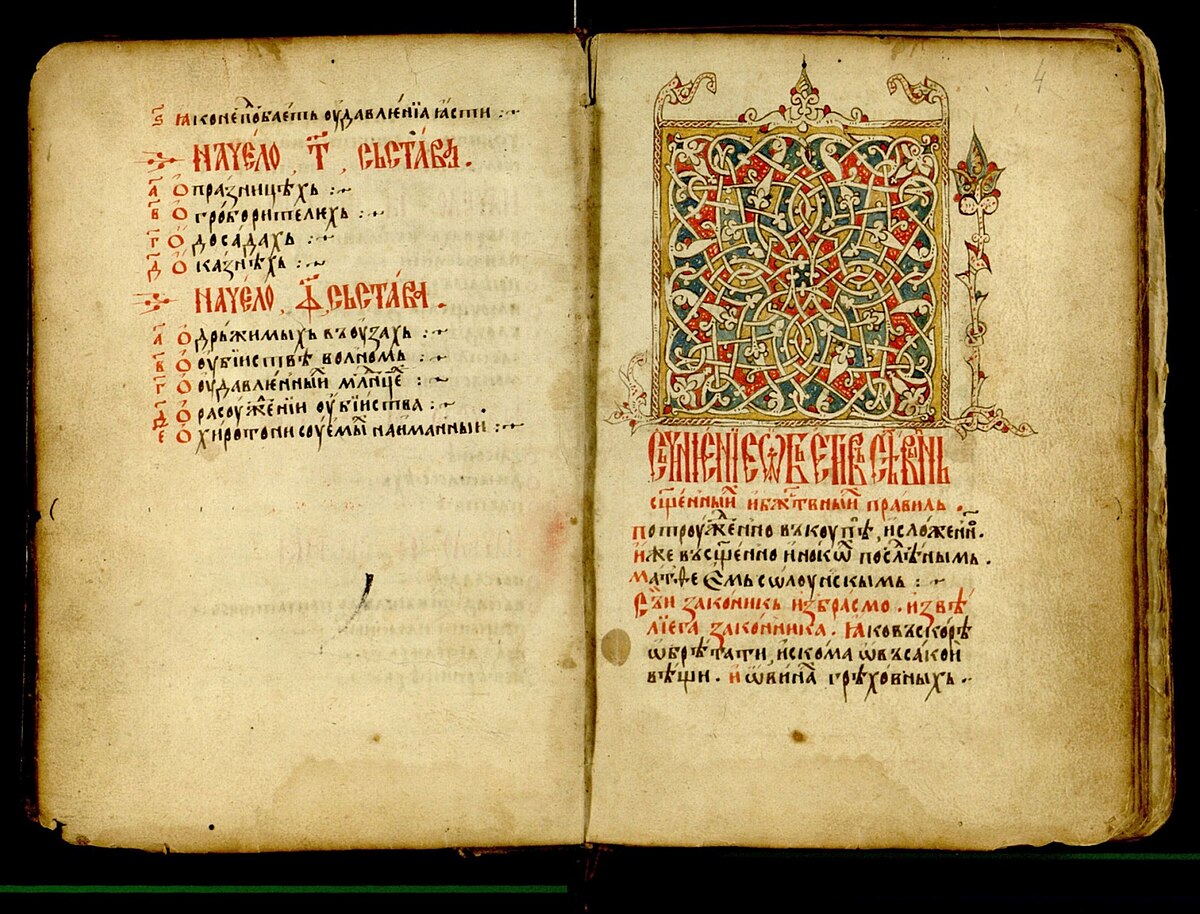 ѕ҃ ꙗко не побаеть оудавленїа ꙗсти :~
Начело , т҃ , съставꙋ .
а҃ О празницѣхь :~
в҃ О гроборителихь :~
г҃ О досадахь :~
д҃ О казнѣхь :~
Начело , ф҃ , състава .
а҃ О дрьжимыхь въ оузахь :~
в҃ О оубїиствѣ волномь :~
г҃ О оудавлѣнныи млⷣнцѣ :~
д҃ О расоуженїи оубїиства :~
е҃ О хиротонисоуемыⷯ на имании :~
Съчинение
сщ҃еннымⷯ и бжⷭ҇твныиⷯ правиль .
потроужⷣенно въкоупѣ , и сложенⷩ҇ .
иже въ сщ҃енно инокѡⷯ послѣднымь .
Матѳеѡмь сѡлоунскымь :~
Съи законикь избрасмо . из вѣ
лїега законника . Ꙗко въскорѣ
ѡбрѣтати искома ѡ въсакои
вѣщи . и ѡ винаⷯ грѣховныхь :~
4